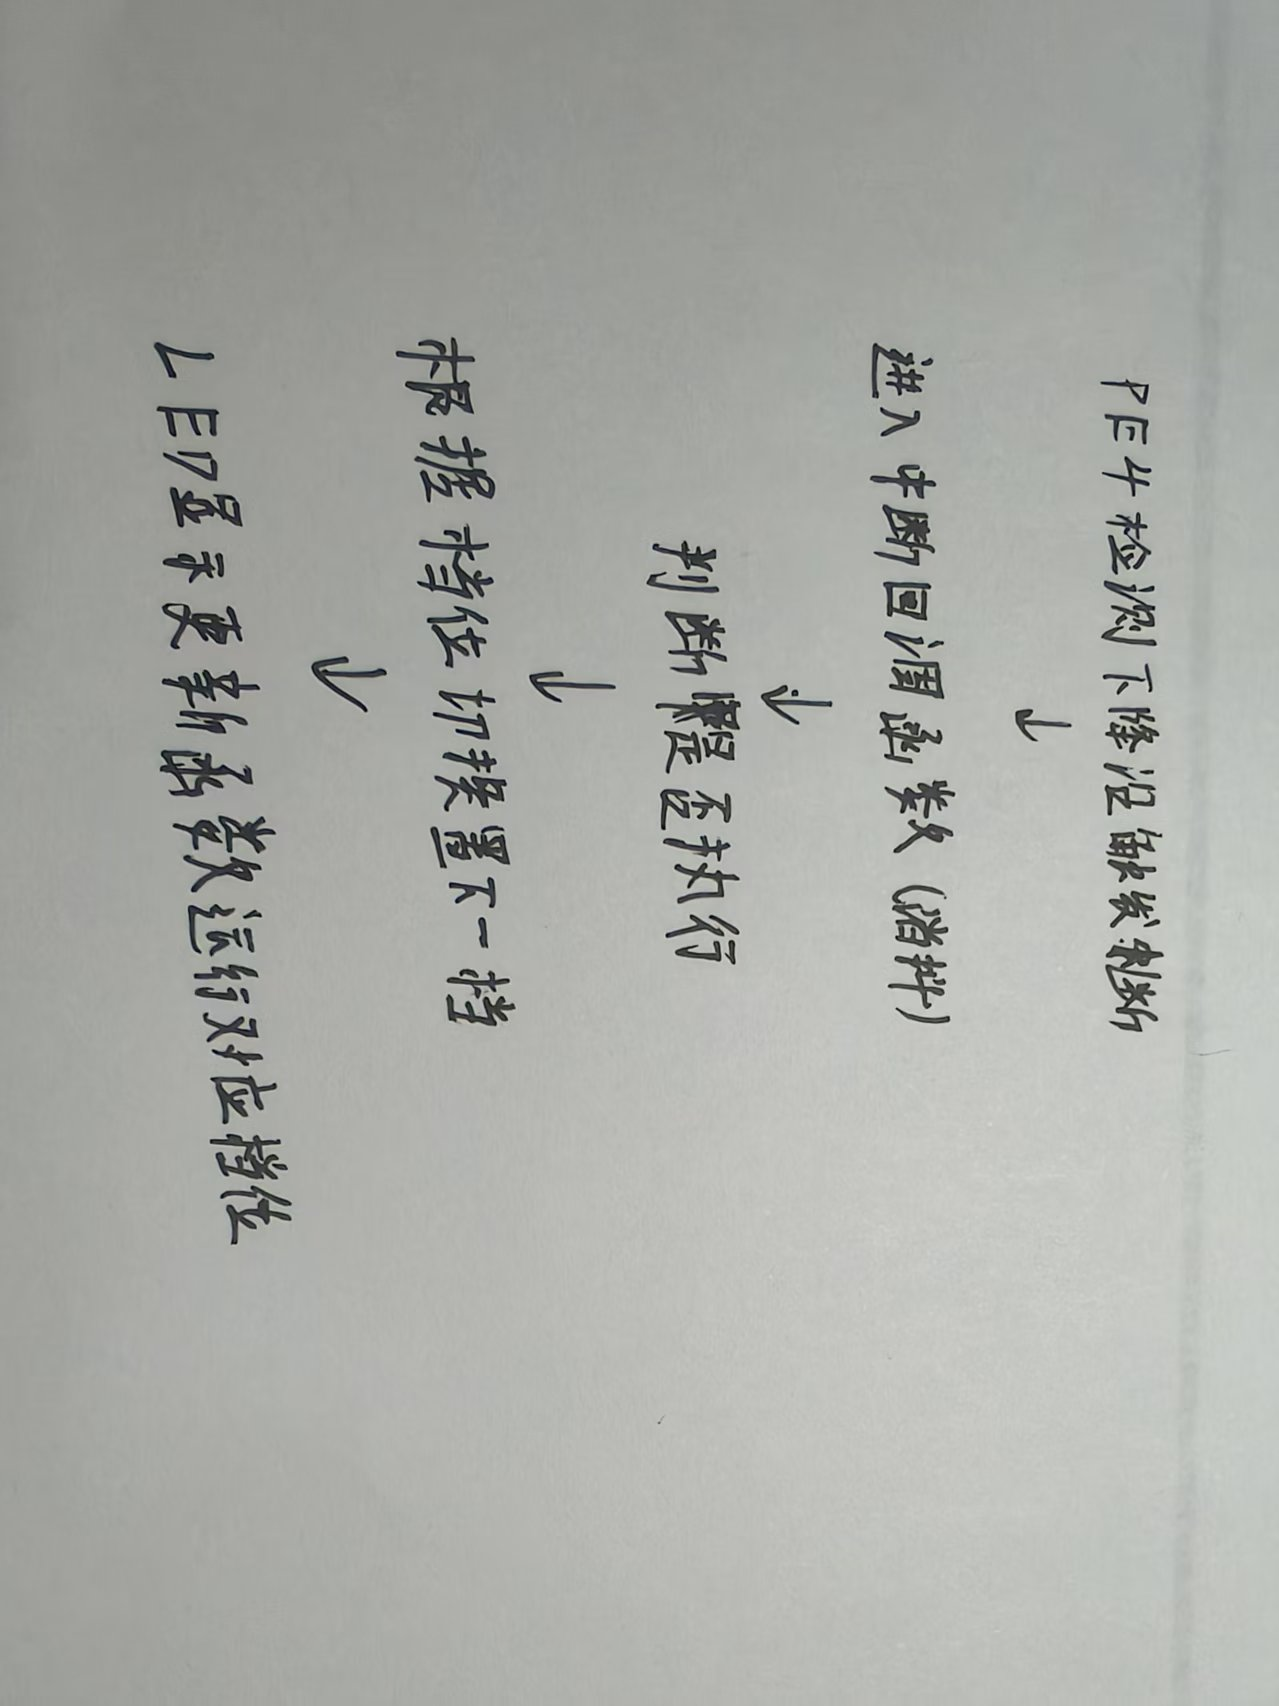 PE4检测下降沿触发判断
↓
进入中断回调函数(消抖)
↓
判断是否执行
↓
根据档位切换置下一档
↓
LED显示更新函数运行对应档位